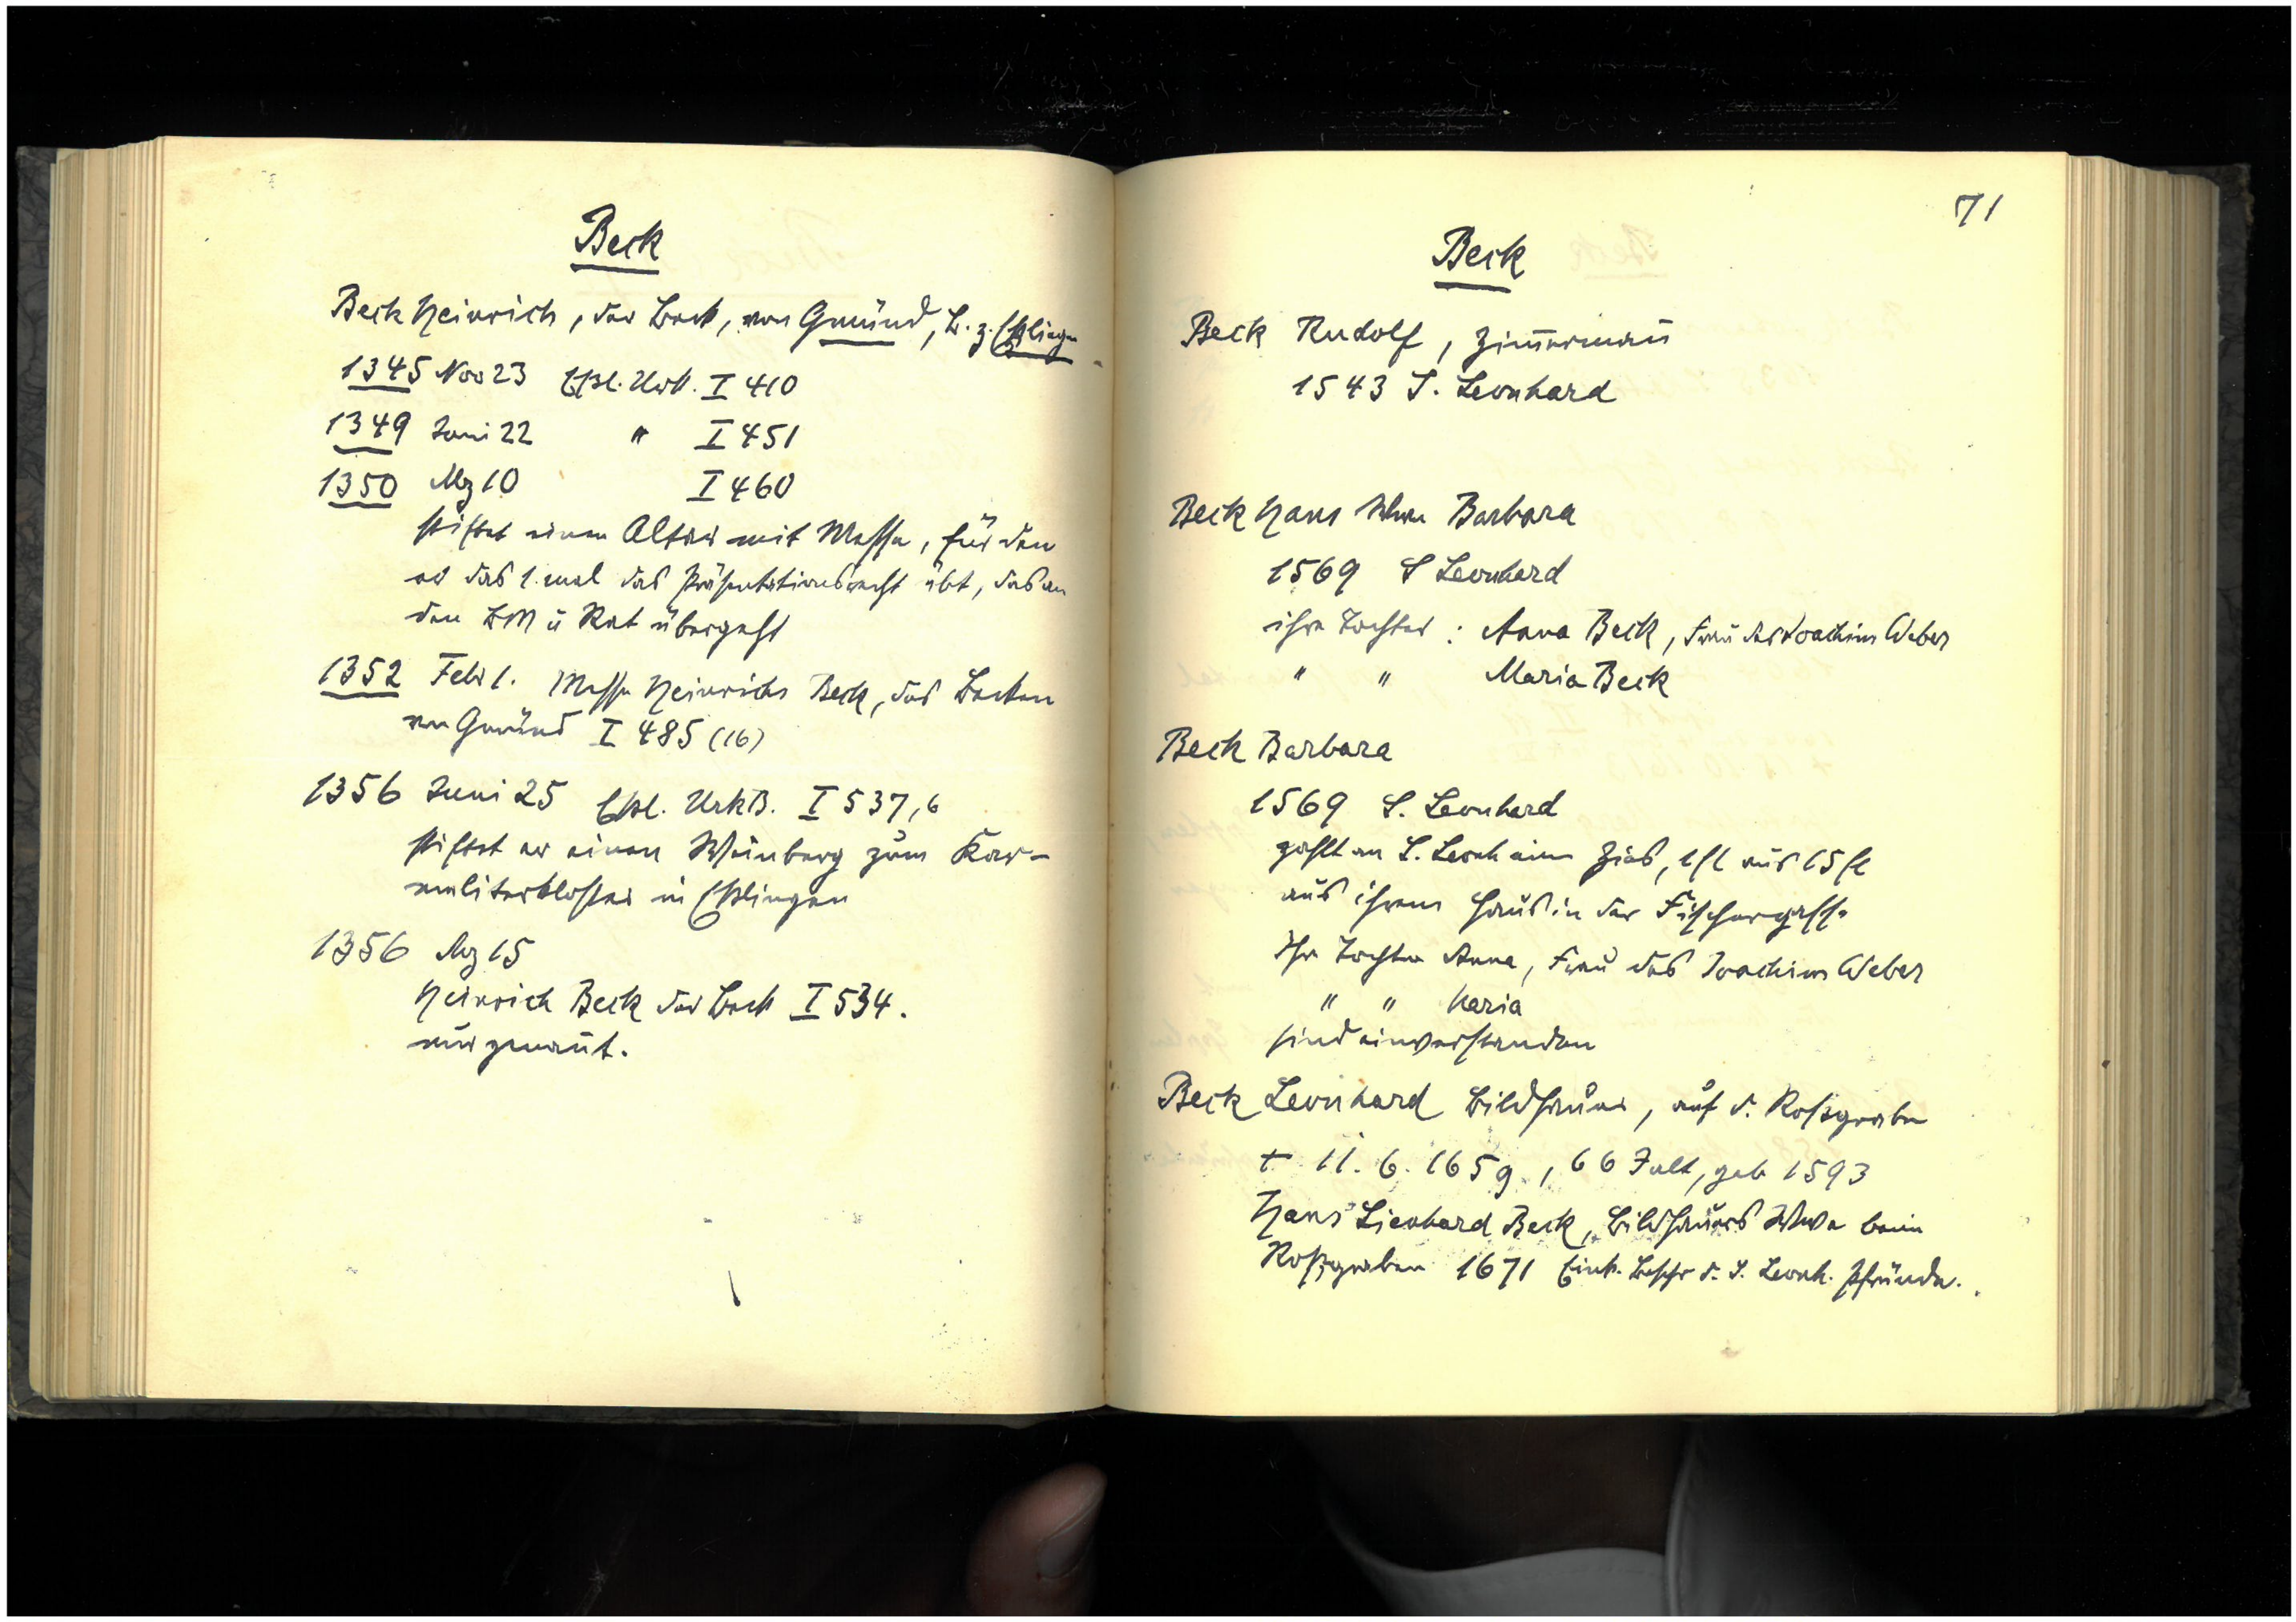 Beck
Beck Heinrich, der Beck, von Gmünd, B. z. Eßlingen
1345 Nov 23 Eßl. Urk. I 410
1349 Juni 22 " I 451
1350 Mz 10 I 460
stiftet einen Altar mit Messe, für den
er das 1. mal das Präsentationsrecht übt, das an
den BM u Rat übergeht
1352 Febr 1. Messe Heinrichs Beck, des Becken
von Gmünd I 485 (16)
1356 Juni 25 Eßl. UrkB. I 537,6
stiftet er einen Weinberg zum Kar-
meliterkloster in Eßlingen
1356 Mz 15
Heinrich Beck der Beck I 534.
nur genan̄t.
71
Beck
Beck Rudolf, Zim̄erman̄
1543 S. Leonhard
Beck Hans Wwe Barbara
1569 S Leonhard
ihre Tochter : Anna Beck, Frau des Joachim Weber
" " Maria Beck
Beck Barbara
1569 S. Leonhard
zahlt an S. Leonh einen Zins, 1 fl aus 15 fl
aus ihrem Haus in der Fischergasse
Ihre Tochter Anna, Frau des Joachim Weber
" " Maria
sind einverstanden
Beck Leonhard Bildhauer, auf d. Roßgraben
† 11. 6. 1659, 66 J alt, geb 1593
Hans Lienhard Beck, Bildhauers Wwe beim
Roßgraben 1671 Eink. Beschr d. S. Leonh. Pfründe.